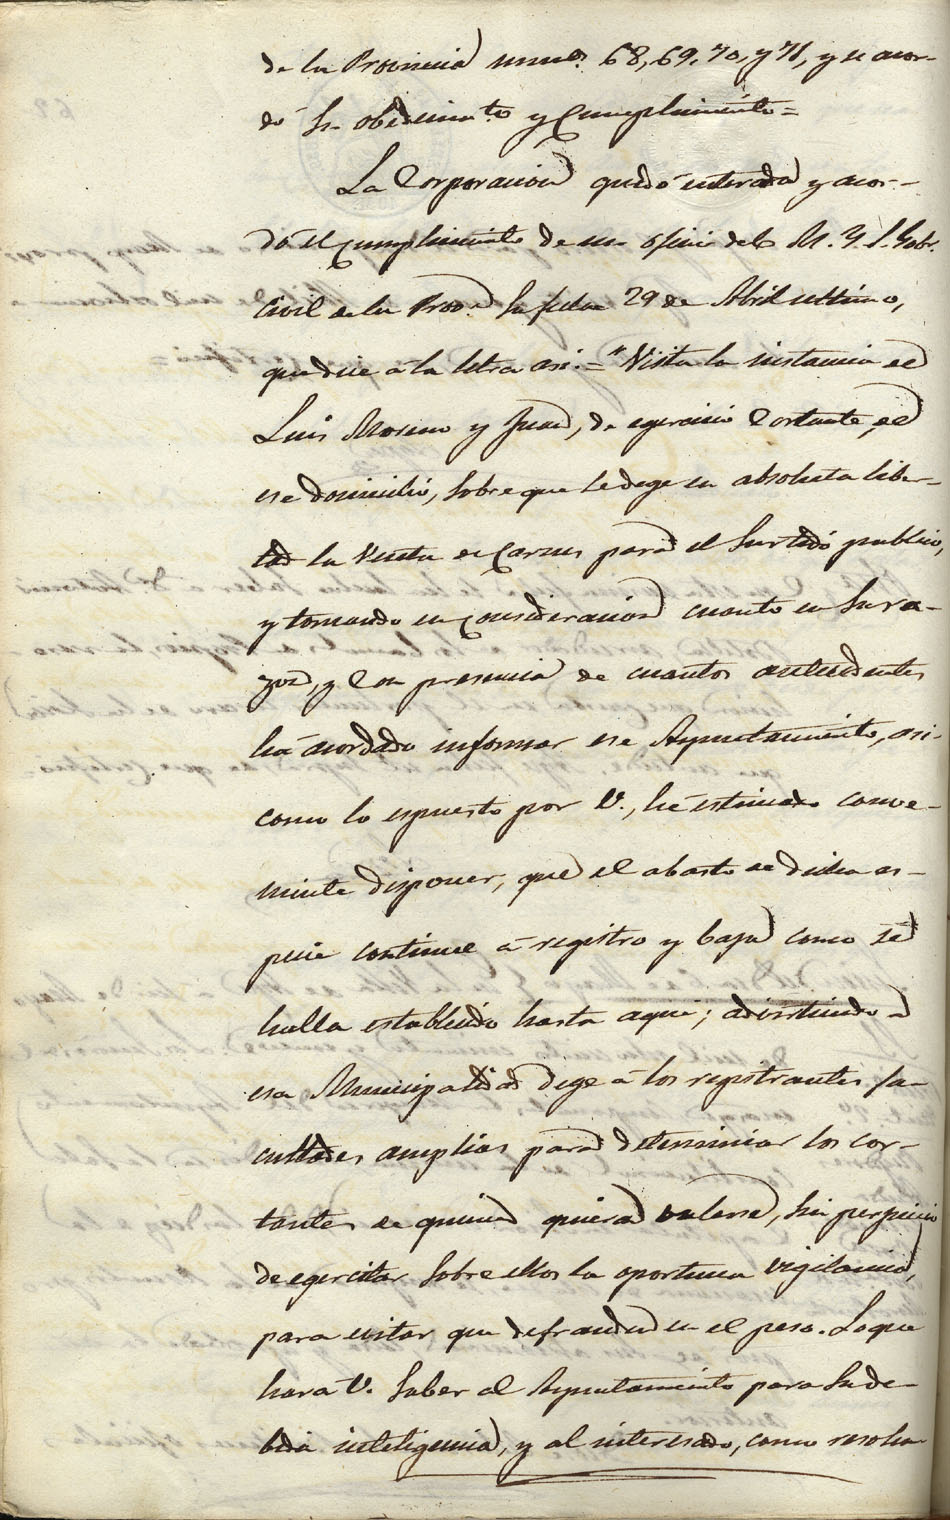 de la Provincia numº. 68, 69, 70, y 71, y se acor-
dó su obedecimto. y Cumplimiento =
La Corporacion quedó enterada y acor-
dó el cumplimiento de un oficio del M. Y. S. Gobr.
Civil de la Prova. su fecha 29 de Abril ultimo,
que dice á la letra asi. = "Vista la instancia de
Luis Moreno y Juan, de egercicio Cortante, de
ese domicilio, sobre que se dege en absoluta liber-
tad la Venta de Carnes para el Surtido publico,
y tomando en Consideracion cuanto en su ra-
zon, y Con presencia de cuantos antecedentes
há acordado informar ese Ayuntamiento, asi-
como lo espuesto por V., hé estimado conve-
niente disponer, que el abasto de dicha es-
pecie continue á registro y baja como se
halla establecido hasta aqui; advirtiendo a
esa Municipalidad dege á los registrantes fa-
cultades amplias para determinar los cor-
tantes de quien quieran valerse, sin perjuicio
de egercitar sobre ellos la oportuna vigilancia,
para evitar que defrauden en el peso. Lo que
hará V. saber al Ayuntamiento para su de-
bida inteligencia, y al interesado, como resolu-